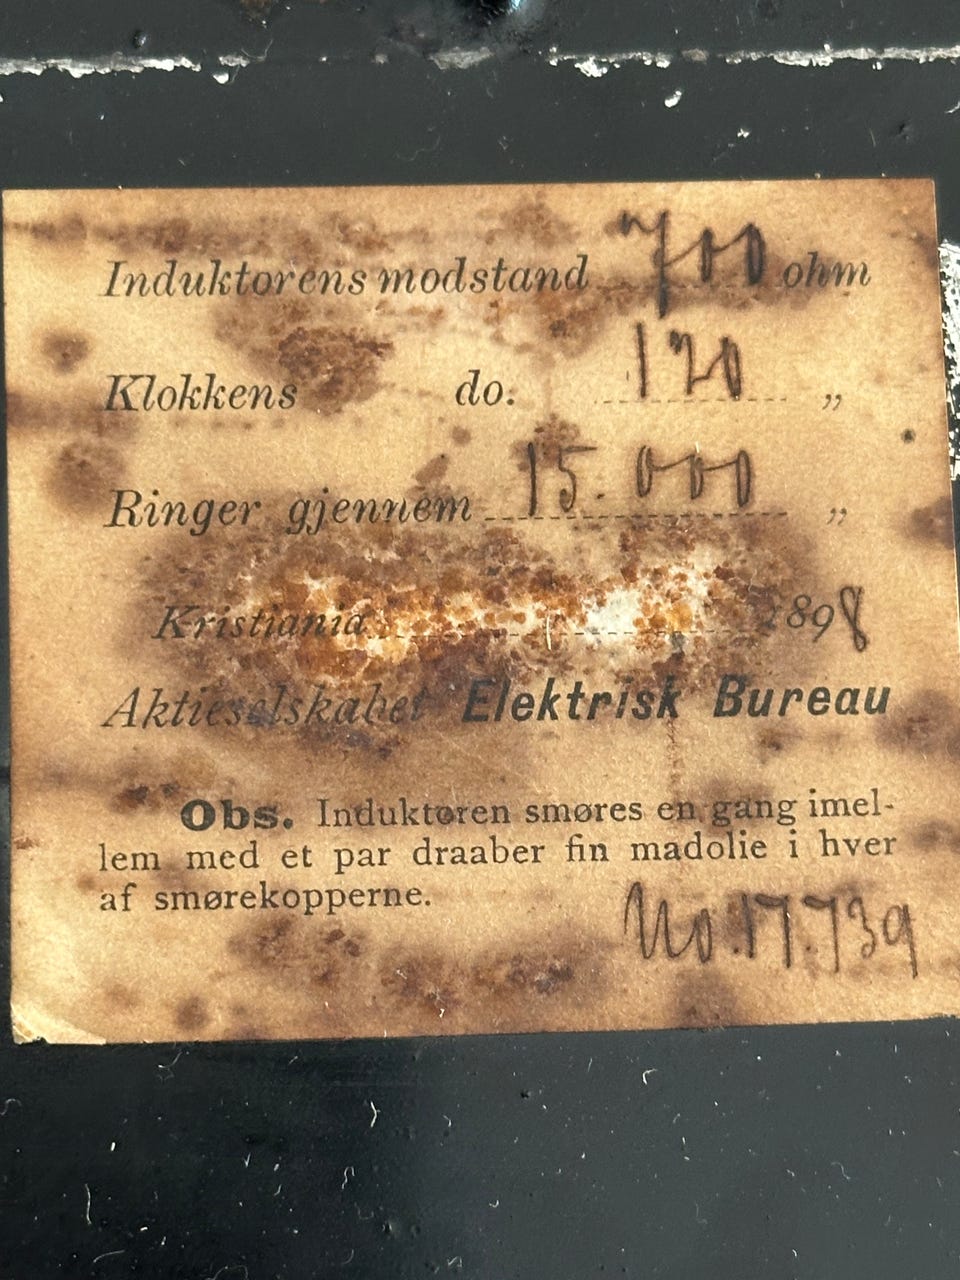 Induktorens modstand 700 ohm
Klokkens do. 120 „
Ringer gjennem 15.000 „
Kristiania 1898
Aktieselskabet Elektrisk Bureau
Obs. Induktoren smøres en gang imel-
lem med et par draaber fin madolie i hver
af smørekopperne.
No. 17.739